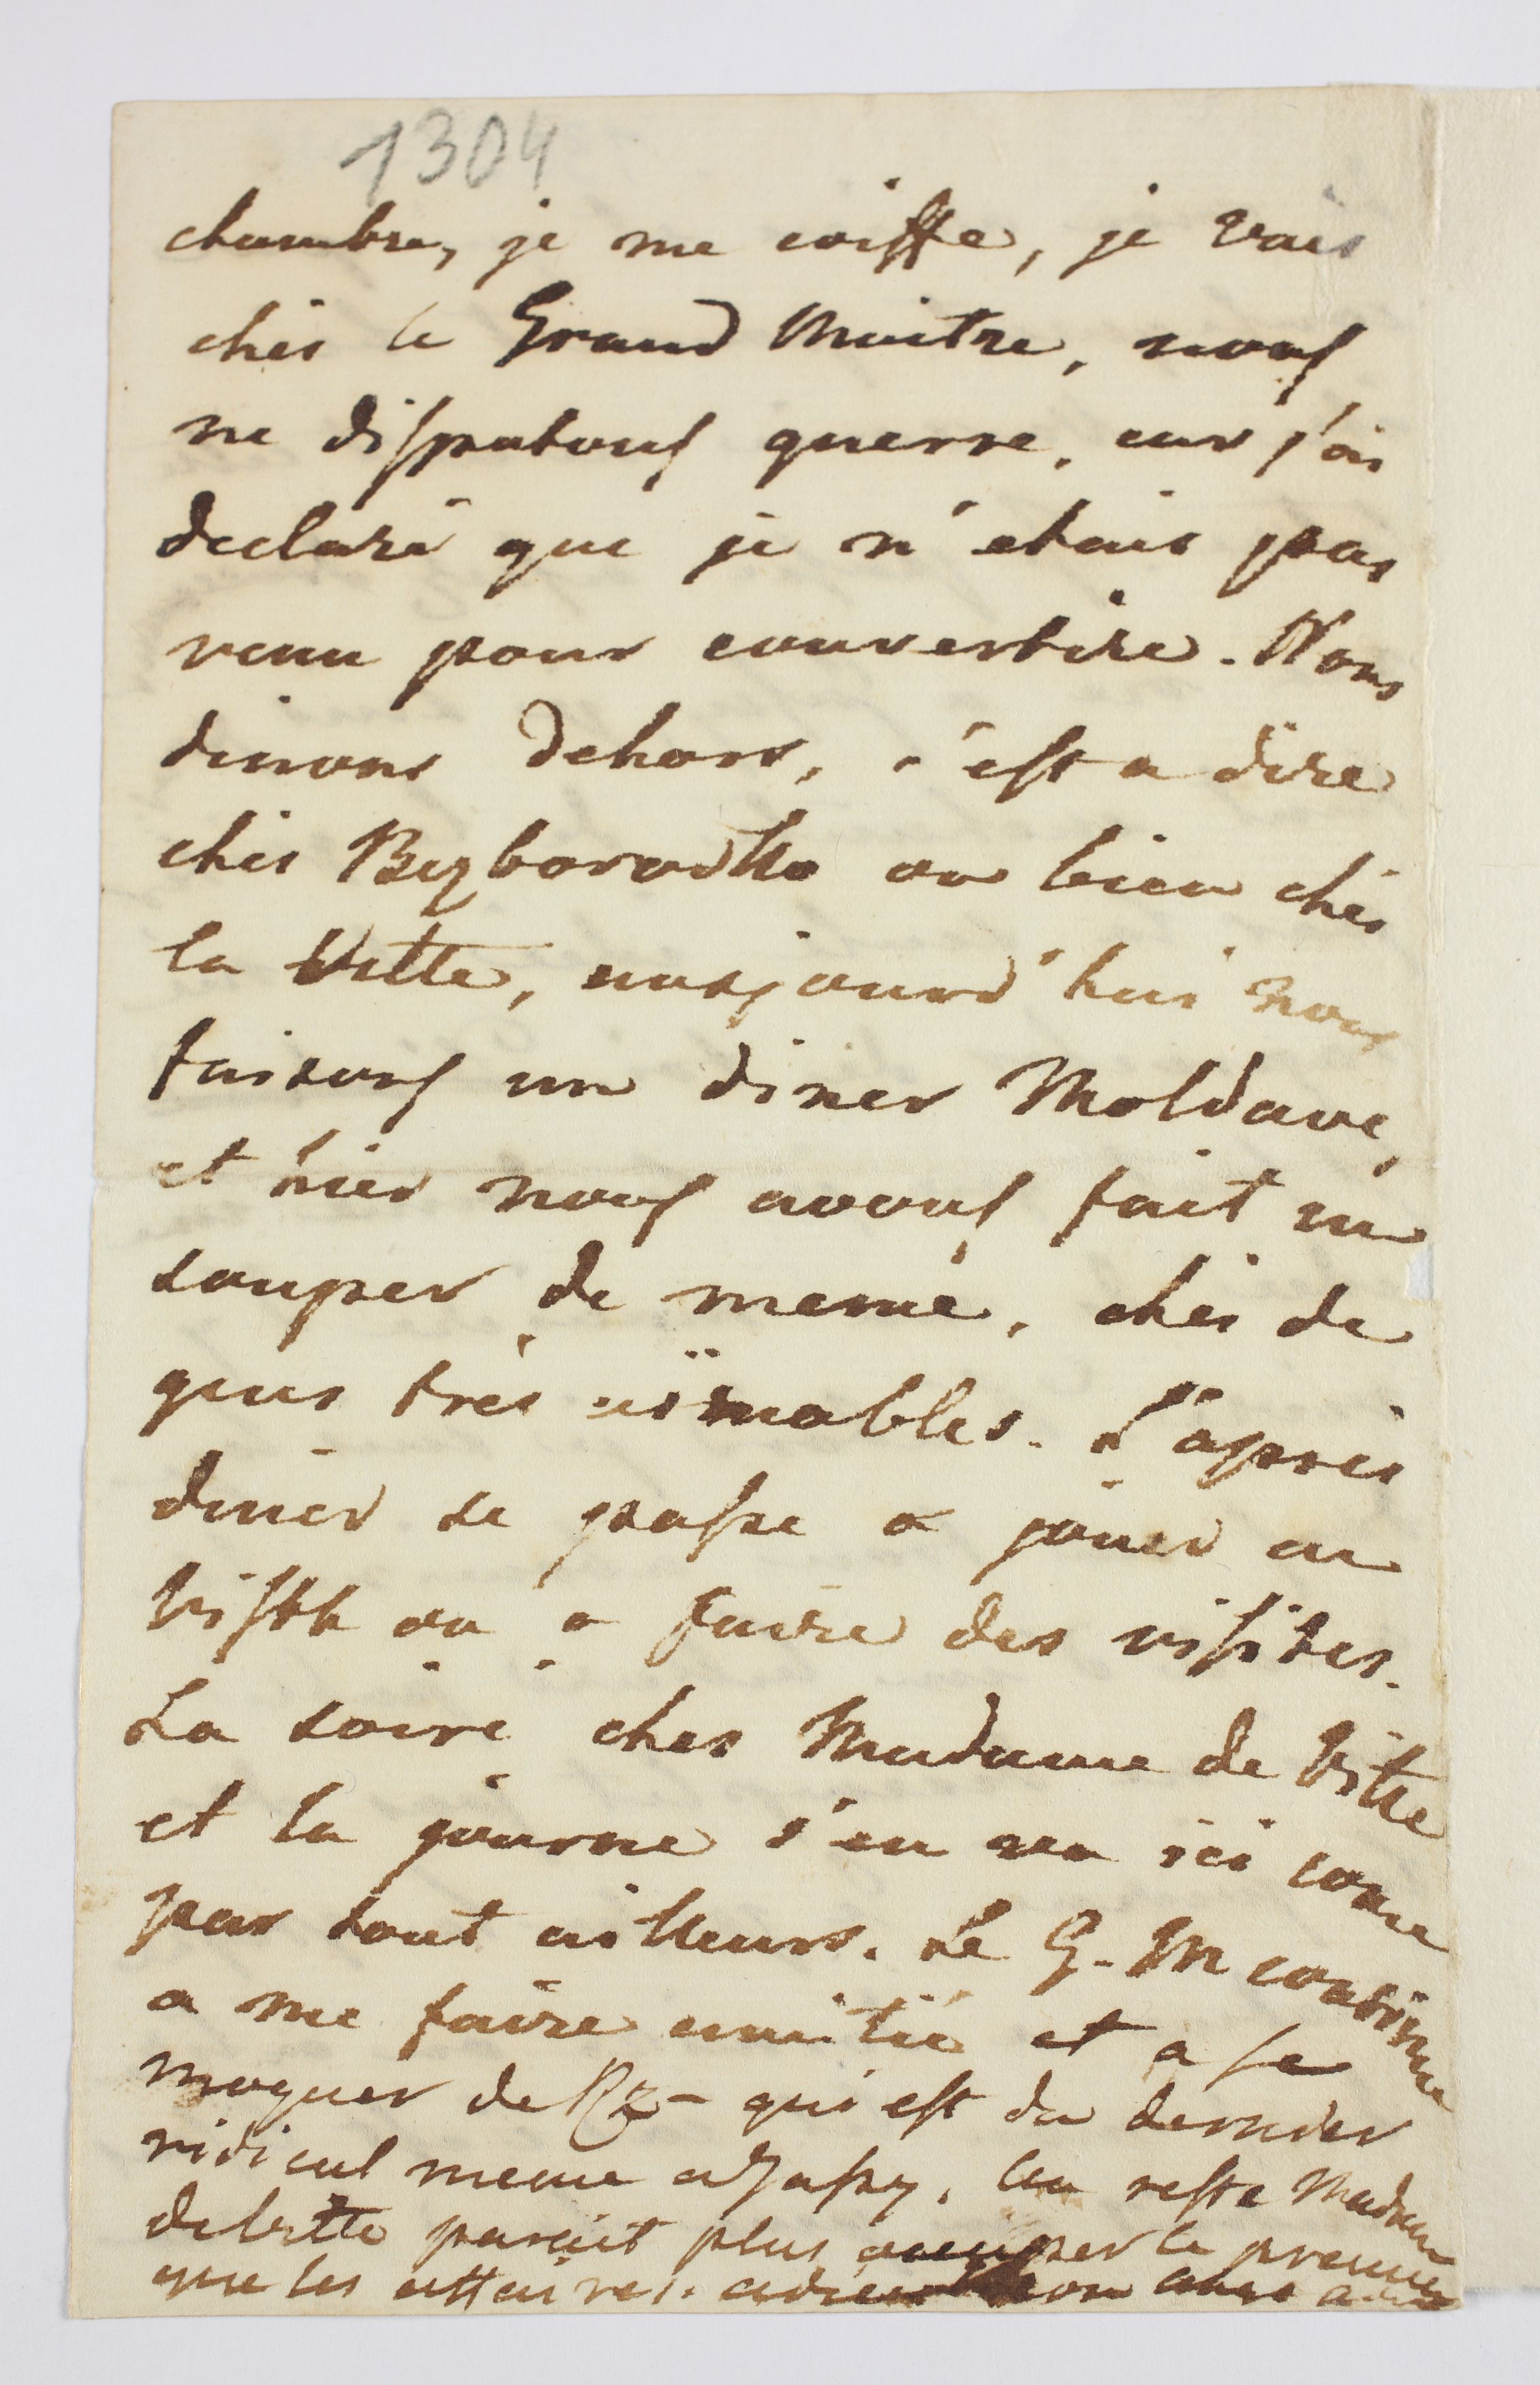 1304
chambre, je me coiffe, je vais
chés le Grand Maitre, nous
ne disputons guerre, car j'ai
declaré que je n'etais pas
venu pour convertire. Nous
dinons dehors, c'est a dire
chés Bezborodko ou bien chés
la Vitte, aujourd'hui nous
faisons un diner Moldave,
et hier nous avons fait un
souper de meme, chés de
gens très aimables. L'aprés
diner se passe a jouer au
Wistk ou a faire des visites.
La soire ches Madame de Vitte
et la journe s'en va ici come
par tout ailleurs. Le G. M continue
a me faire amitié et a se
moquer de Rz- qui est du dernier
ridicul meme a Jassy. Au reste Madame
de Vitte parait plus occuper le premier
que les affaires. adieu mon